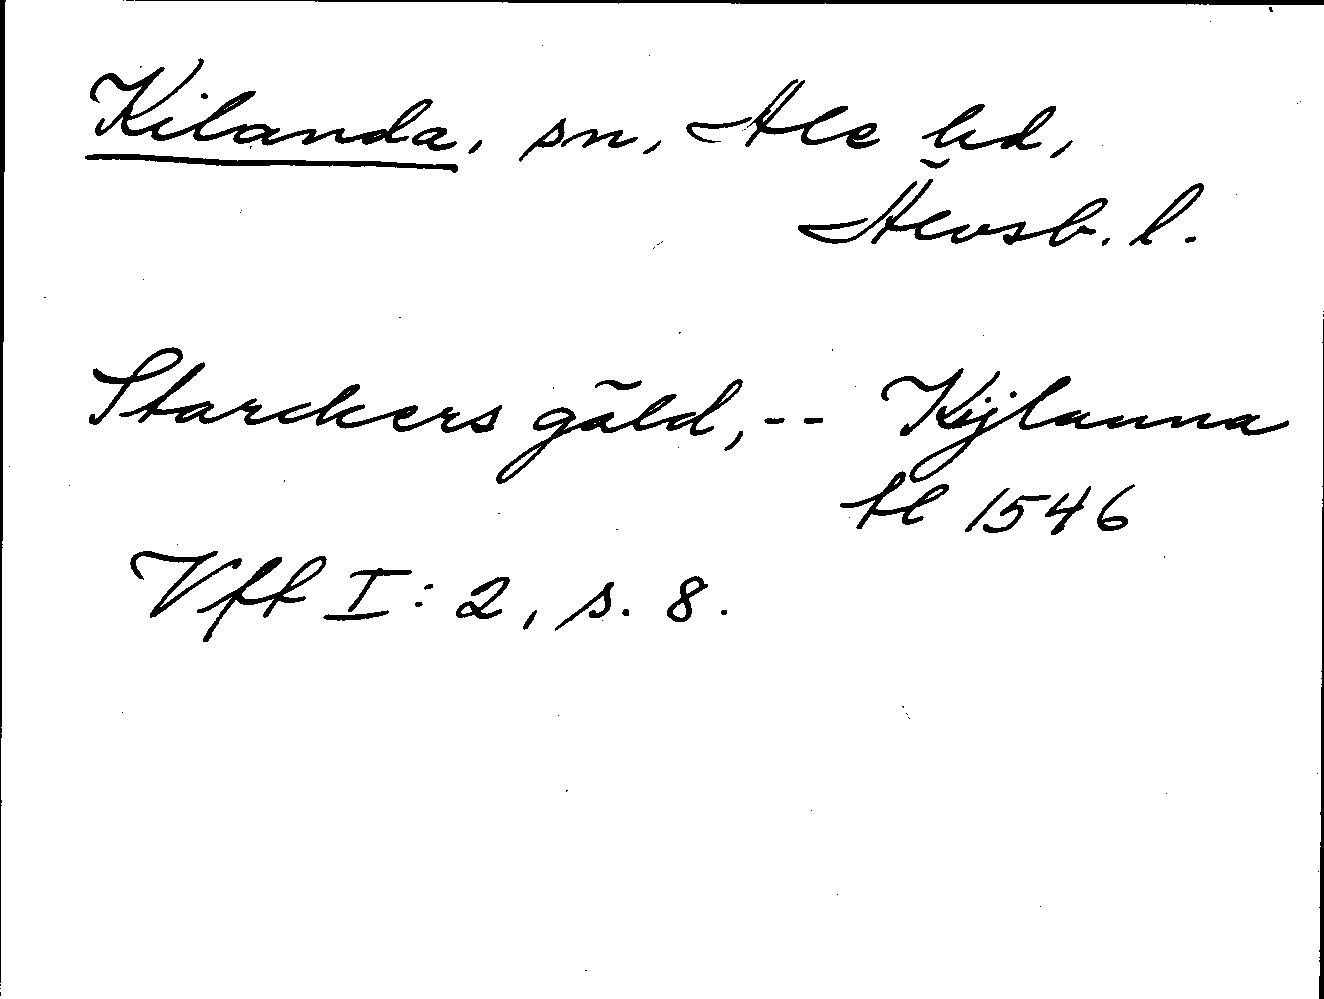 Kilanda, sn, Ale hd,
Älvsb. l.
Starckers gäld, -- Kijlanna
tl 1546
Vff I: 2, s. 8.